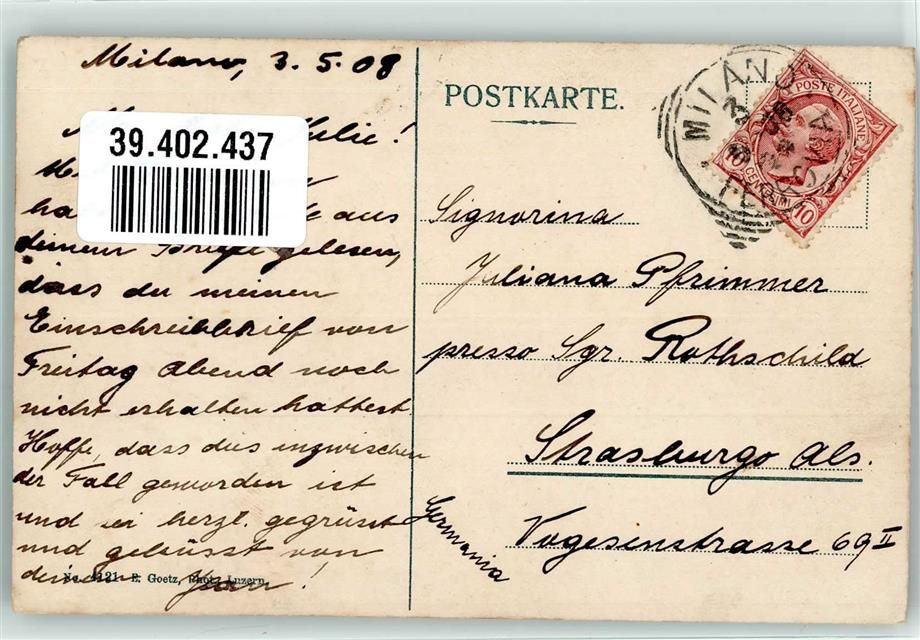 Milano, 3.5.08
39.402.437
aus
deinem Briefe gelesen,
dass du meinen
Einschreibbrief von
Freitag Abend noch
nicht erhalten hattest.
Hoffe, dass dies inzwischen
der Fall geworden ist
und sei herzl. gegrüsst
und geküsst von
deinem
No. 4121 E. Goetz, Phot., Luzern.
POSTKARTE.
MILANO
POSTE ITALIANE
10 CENTESIMI 10
Signorina
Juliana Pfrimmer
presso Sgr. Rothschild
Strasburgo Als.
Vogesenstrasse 69 II
Germania